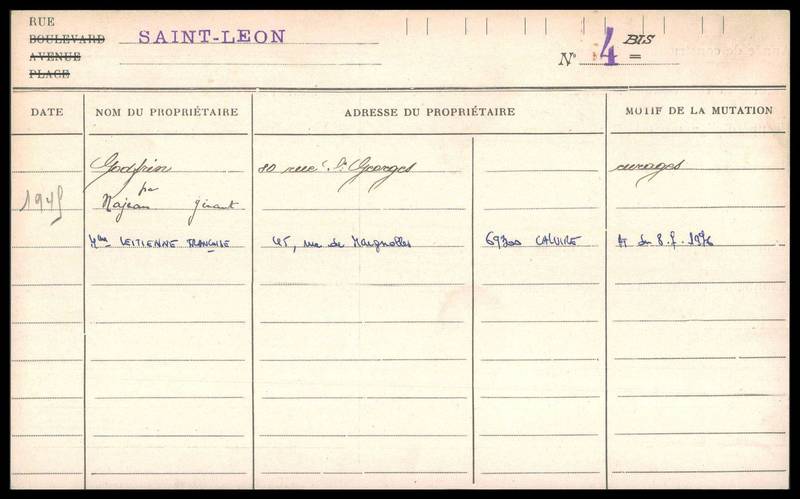 RUE
BOULEVARD
AVENUE
PLACE
SAINT-LEON
N° 4 BIS
DATE NOM DU PROPRIÉTAIRE ADRESSE DU PROPRIÉTAIRE MOTIF DE LA MUTATION
Godfrin 80 rue St Georges
par
1945 Najean gérant
Mme LEITIENNE FRANÇOISE 45, rue de Margnolles 69300 CALUIRE du 8.7.1976